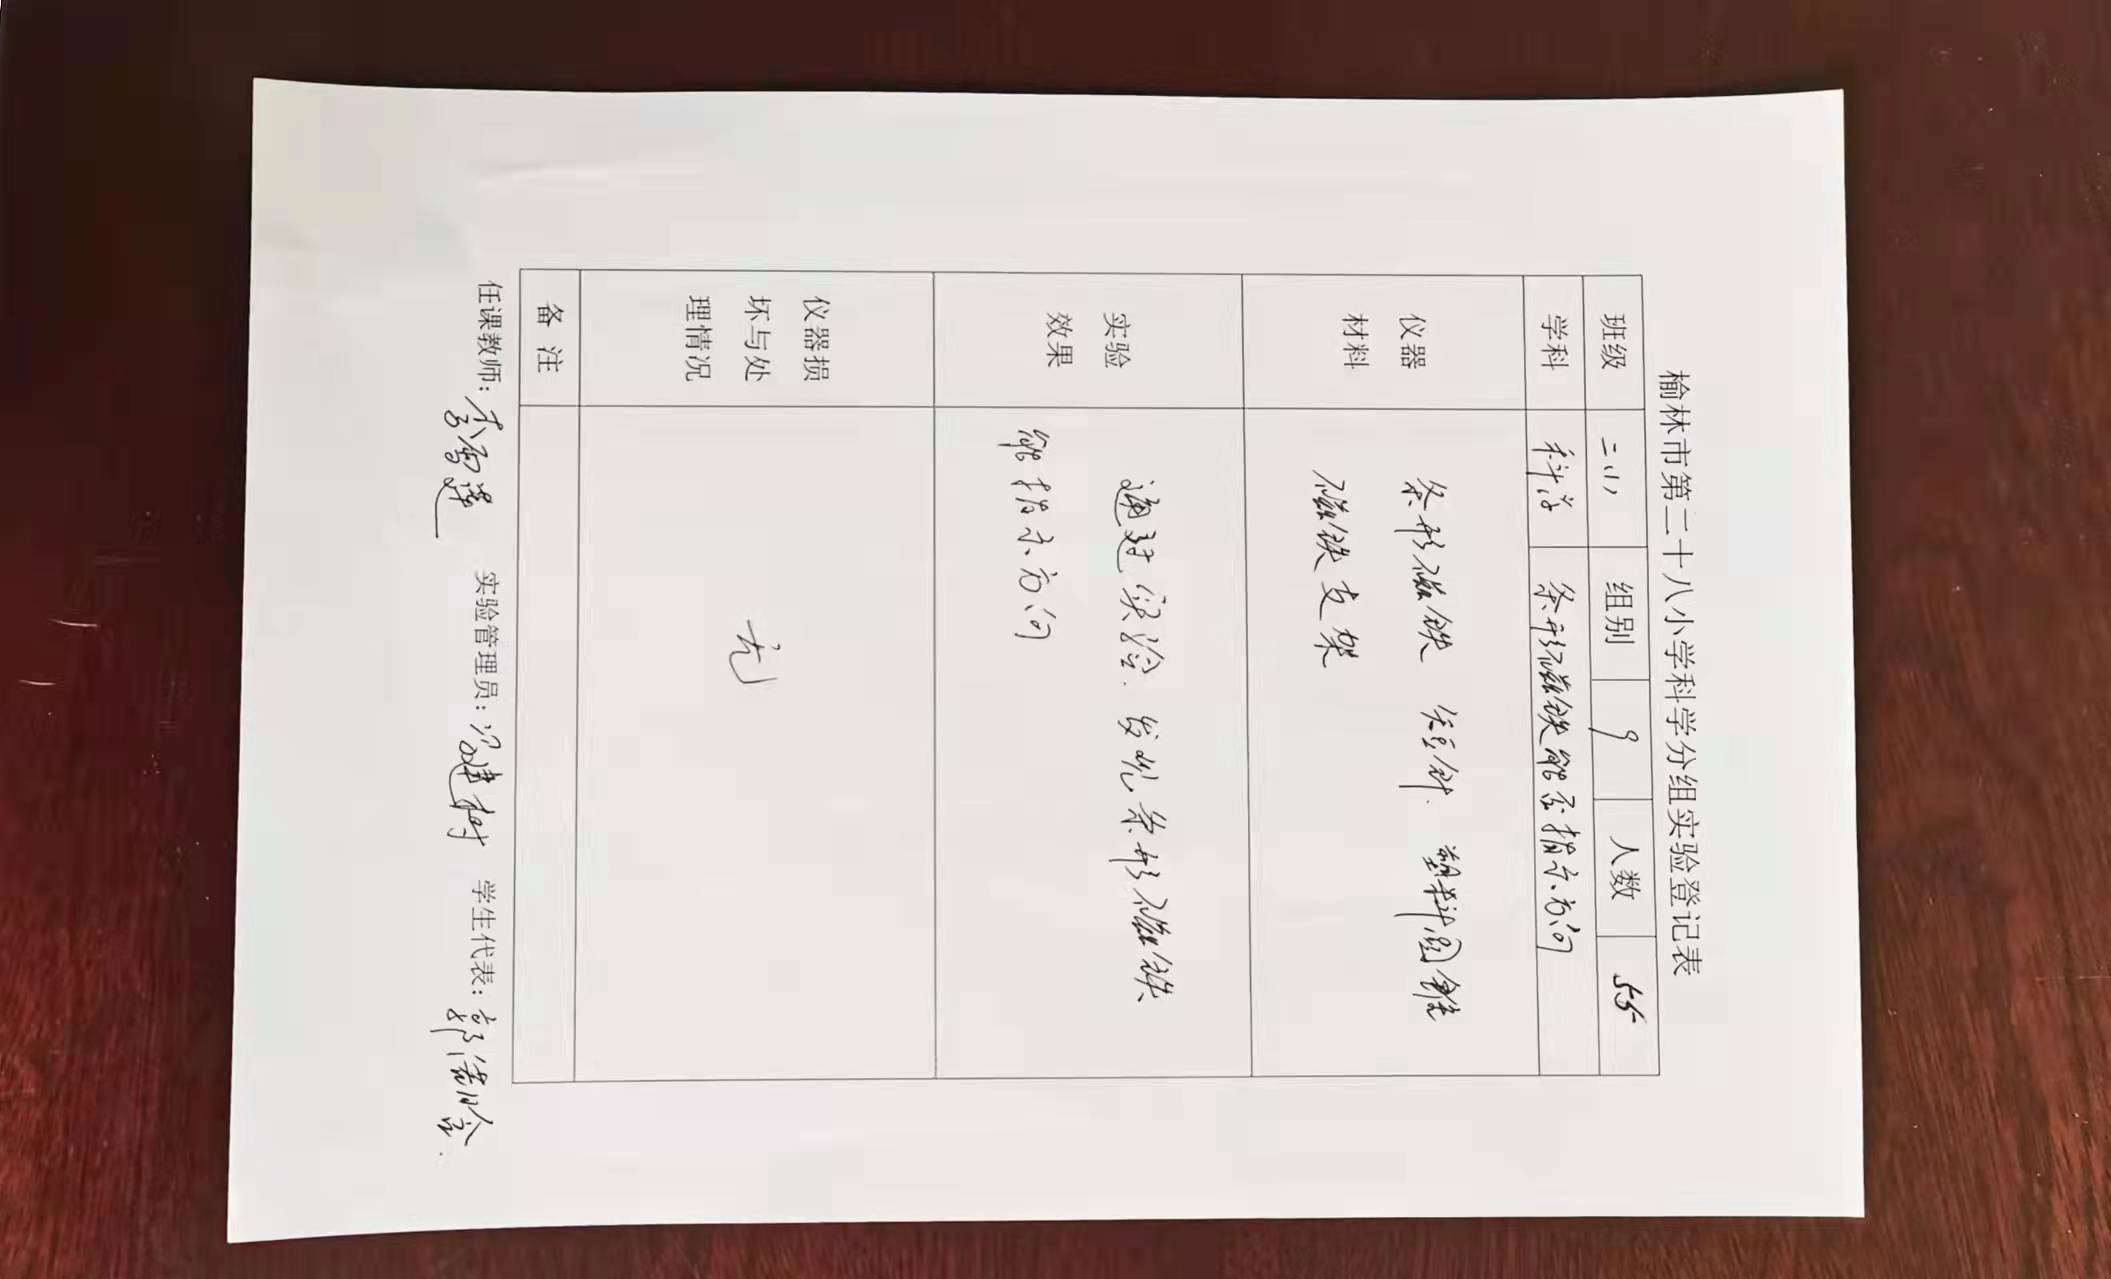 榆林市第二十八小学科学分组实验登记表
班级 二(1) 组别 9 人数 55
学科 科学 条形磁铁能否指示方向
仪器 材料 条形磁铁 大头针 塑料圆锥
磁铁支架
实验 效果 通过实验.发现条形磁铁
能指示方向
仪器损 坏与处 理情况 无
备 注
任课教师: 实验管理员: 建树 学生代表: 郭浩